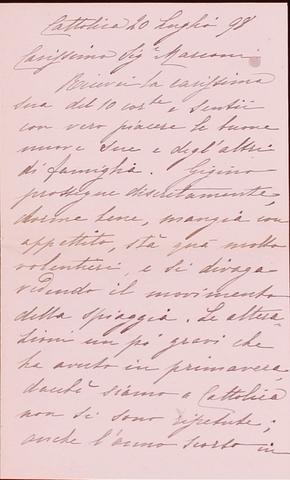 Cattolica 20 Luglio 98
Carissimo Sig.r Marconi
Ricevei la carissima
sua del 10 corte e sentii
con vero piacere le buone
nuove Sue e degl'altri
di famiglia. Gigino
prosegue discretamente,
dorme bene, mangia con
appettito, stà quà molto
volentieri, e si divaga
vedendo il movimento
della spiaggia. Le altera
zioni un pò gravi che
ha avuto in primavera,
dacchè siamo a Cattolica
non si sono ripetute;
anche l'anno scorso in